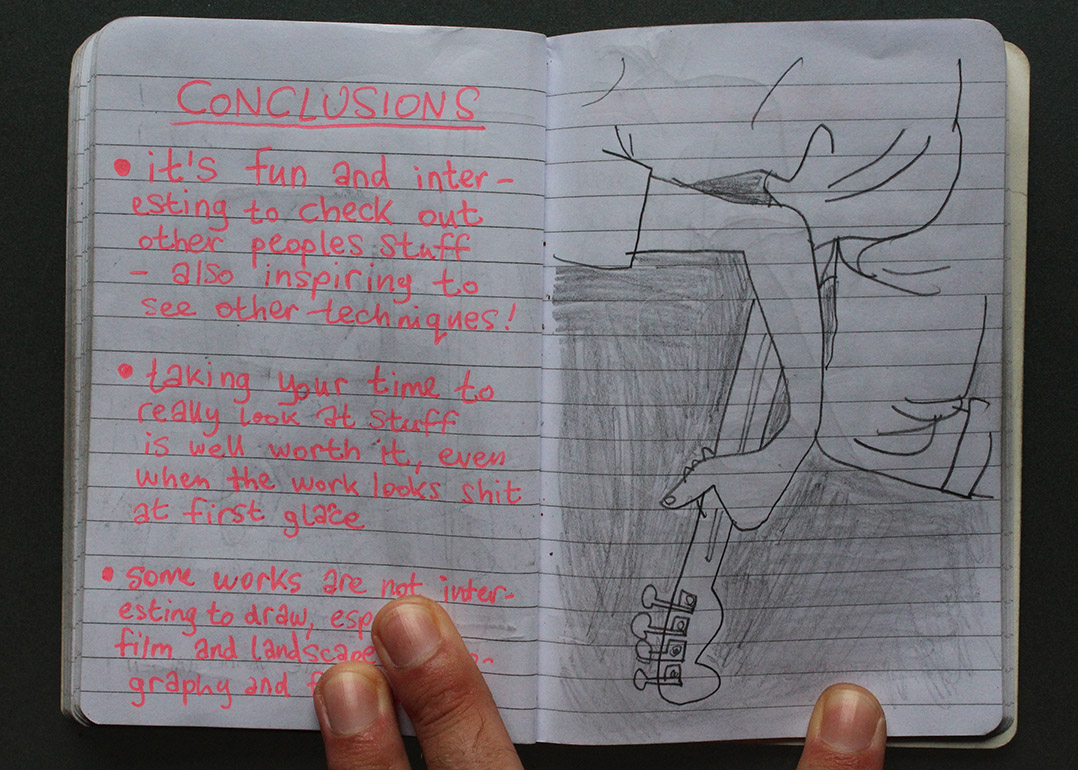 CONCLUSIONS
• it's fun and inter-
esting to check out
other peoples stuff
- also inspiring to
see other techniques!
• taking your time to
really look at stuff
is well worth it, even
when the work looks shit
at first glace
• some works are not inter-
esting to draw,
film and landscape
graphy and